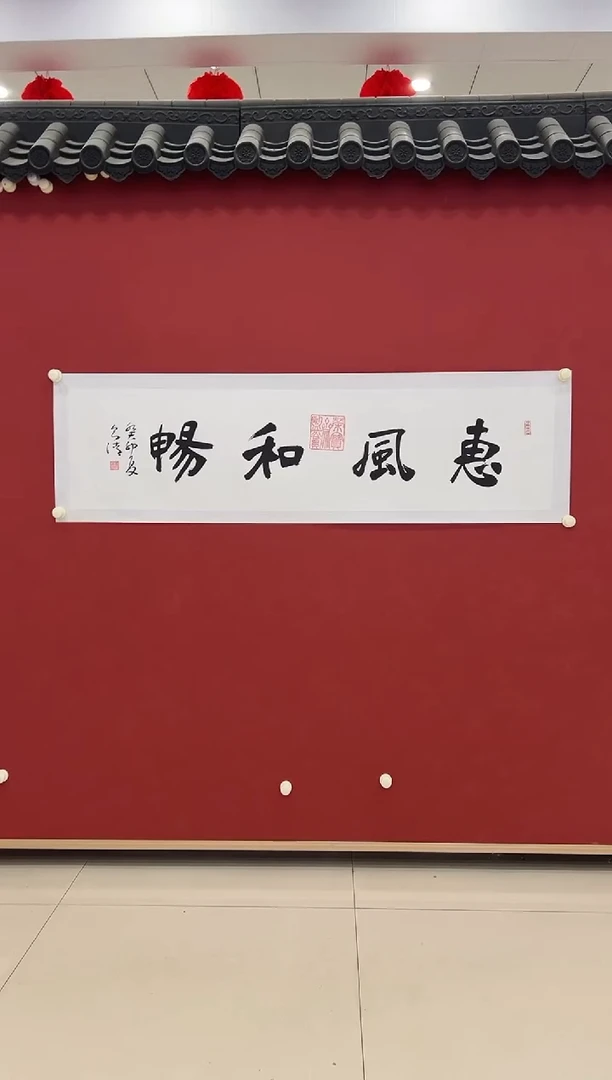 惠風和暢
癸卯夏